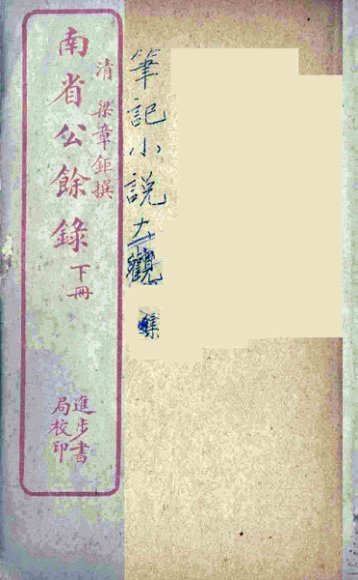 清 梁章鉅撰
南省公餘錄 下冊
進步書
局校印
筆記小說大觀